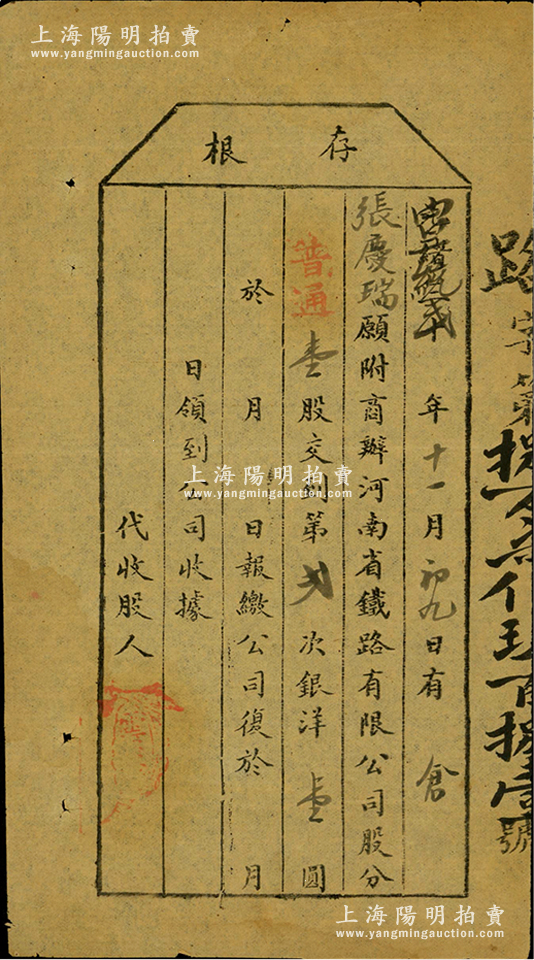 上海陽明拍賣
www.yangmingauction.com
存根
年十一月初九日有 倉
張慶瑞願附商辦河南省鐵路有限公司股分
普通壹股交到第弍次銀洋壹圓
於 月 日報繳公司復於 月
日領到公司收據
代收股人
路字第捌万六仟五百捌壹號
上海陽明拍賣
www.yangmingauction.com
上海陽明拍賣
www.yangmingauction.com